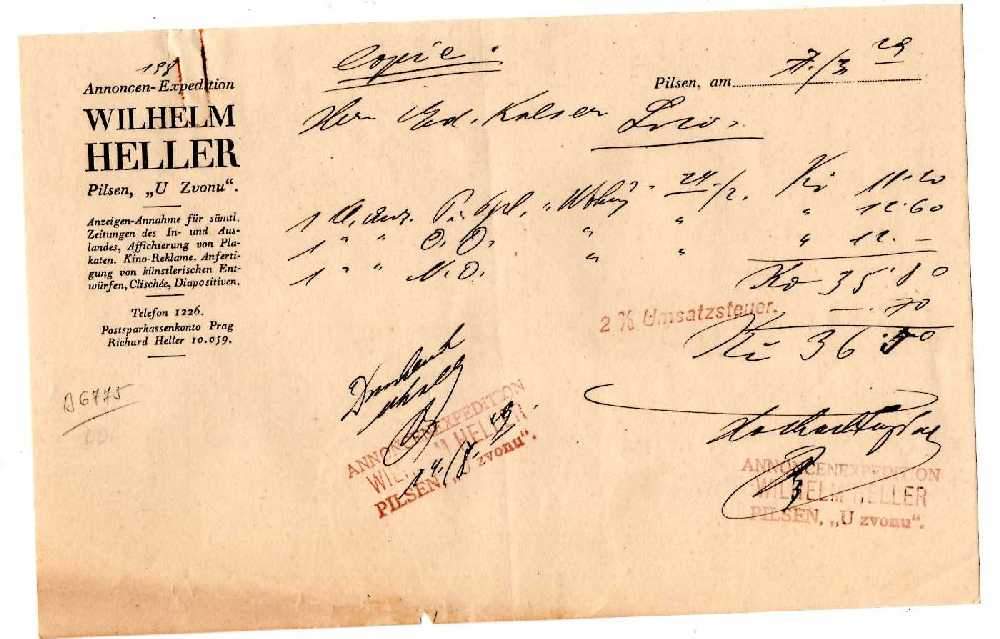 198
Annoncen-Expedition
WILHELM
HELLER
Pilsen, „U Zvonu“.
Anzeigen-Annahme für sämtl.
Zeitungen des In- und Aus-
landes, Affichierung von Pla-
katen. Kino-Reklame. Anferti-
gung von künstlerischen Ent-
würfen, Clischée, Diapositiven.
Telefon 1226.
Postsparkassenkonto Prag
Richard Heller 10.059.
A 6775
Copie.
Pilsen, am 7./3 29
Herrn Ed. Kalser Loco.
1 Kl. Anz. P. Tgbl. 24/2. Kč 11·20
1 " " " " " 12·60
1 " " " " " 12.—
Kč 35·80
2 % Umsatzsteuer. —.70
Kč 36·50
Dankend
erhalten
ANNONCENEXPEDITION
WILHELM HELLER
PILSEN, „U zvonu“.
Hochachtungsvoll
ANNONCENEXPEDITION
WILHELM HELLER
PILSEN, „U zvonu“.